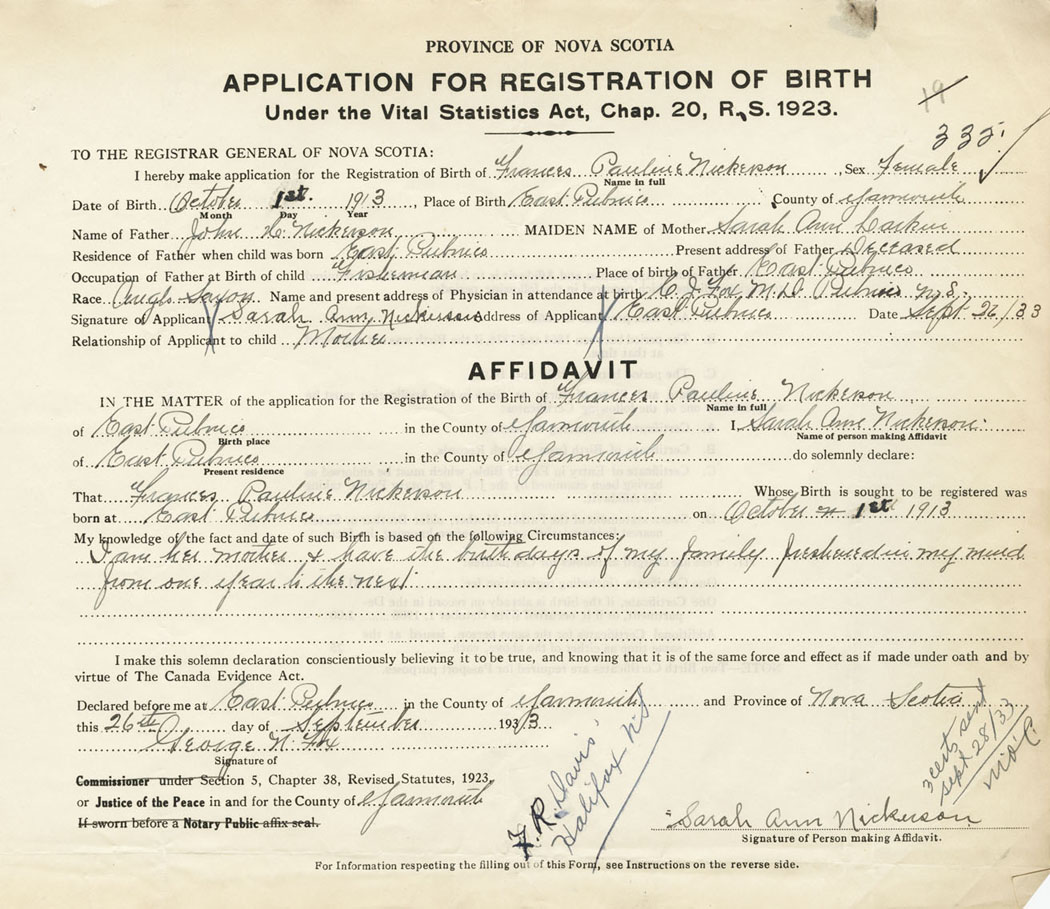 PROVINCE OF NOVA SCOTIA
APPLICATION FOR REGISTRATION OF BIRTH
Under the Vital Statistics Act, Chap. 20, R. S. 1923.
19
335.
TO THE REGISTRAR GENERAL OF NOVA SCOTIA:
I hereby make application for the Registration of Birth of Frances Pauline Nickerson, Sex Female
Name in full
Date of Birth October 1st. 1913, Place of Birth East Pubnico County of Yarmouth
Month Day Year
Name of Father John Nickerson MAIDEN NAME of Mother Sarah Ann Larkin
Residence of Father when child was born East Pubnico Present address of Father Deceased
Occupation of Father at Birth of child Fisherman Place of birth of Father East Pubnico
Race Anglo-Saxon Name and present address of Physician in attendance at birth C. J. Fox M.D. Pubnico N.S.
Signature of Applicant Sarah Ann Nickerson Address of Applicant East Pubnico Date Sept 26/33
Relationship of Applicant to child Mother
AFFIDAVIT
IN THE MATTER of the application for the Registration of the Birth of Frances Pauline Nickerson
Name in full
of East Pubnico in the County of Yarmouth I, Sarah Ann Nickerson
Birth place Name of person making Affidavit
of East Pubnico in the County of Yarmouth do solemnly declare:
Present residence
That Frances Pauline Nickerson Whose Birth is sought to be registered was
born at East Pubnico on October 1st 1913
My knowledge of the fact and date of such Birth is based on the following Circumstances:
I am her mother & have the birthdays of my family freshened in my mind
from one year to the next
I make this solemn declaration conscientiously believing it to be true, and knowing that it is of the same force and effect as if made under oath and by
virtue of The Canada Evidence Act.
Declared before me at East Pubnico in the County of Yarmouth and Province of Nova Scotia
this 26th day of September 1933
George N. Fox
Signature of
Commissioner under Section 5, Chapter 38, Revised Statutes, 1923,
or Justice of the Peace in and for the County of Yarmouth
If sworn before a Notary Public affix seal.
F. R. Davis
Halifax NS
3 certs sent
Sept 28/33
Sarah Ann Nickerson
Signature of Person making Affidavit.
For Information respecting the filling out of this Form, see Instructions on the reverse side.